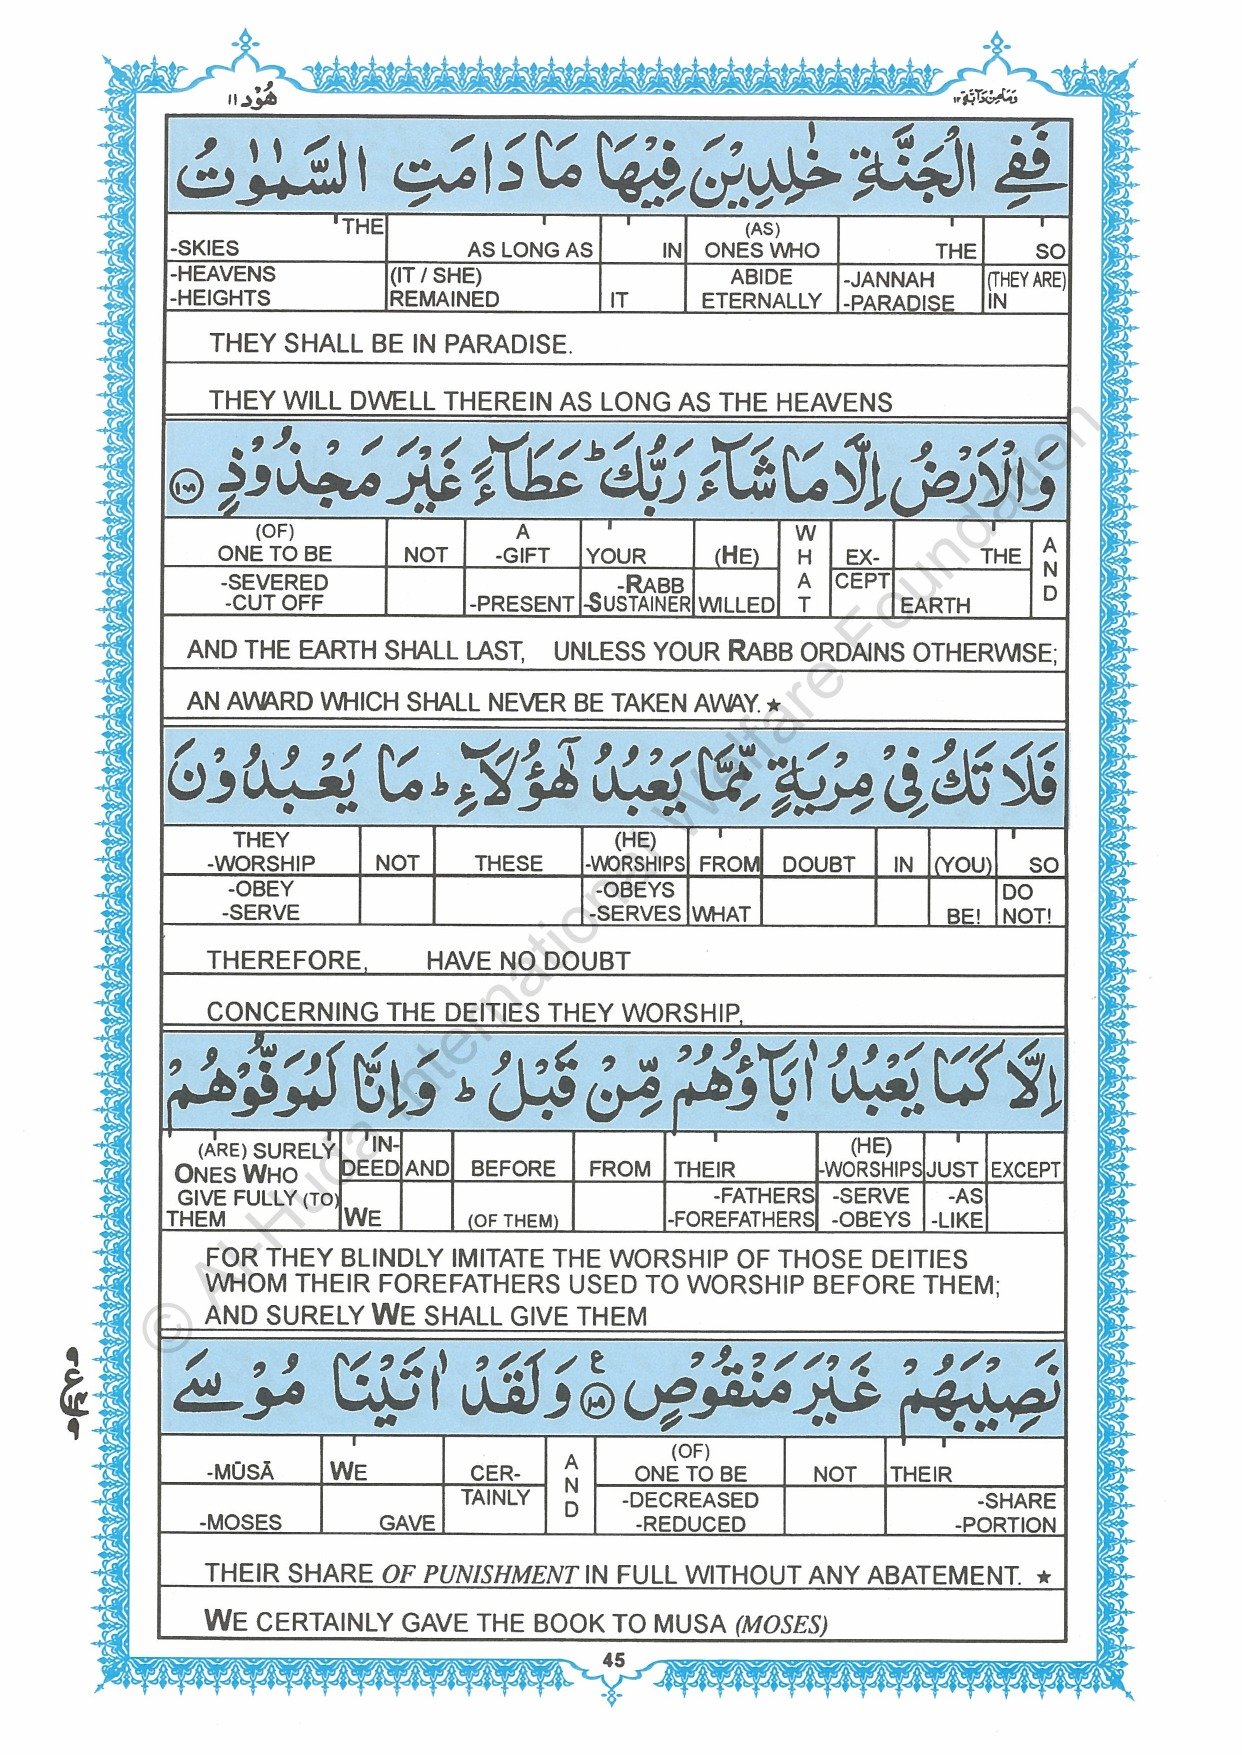 هُوْد ١١
وَمَا مِنْ دَآبَّةٍ ١٢
فَفِي الْجَنَّةِ خٰلِدِيْنَ فِيْهَا مَا دَامَتِ السَّمٰوٰتُ
THE AS LONG AS IN (AS) ONES WHO THE SO
-SKIES
-HEAVENS (IT / SHE) ABIDE -JANNAH (THEY ARE)
-HEIGHTS REMAINED IT ETERNALLY -PARADISE IN
THEY SHALL BE IN PARADISE.
THEY WILL DWELL THEREIN AS LONG AS THE HEAVENS
وَالْاَرْضُ اِلَّا مَا شَآءَ رَبُّكَ ؕ عَطَآءً غَيْرَ مَجْذُوْذٍ ١٠٨
(OF) A WHAT AND
ONE TO BE NOT -GIFT YOUR (HE) EX- THE
-SEVERED -RABB CEPT
-CUT OFF -PRESENT -SUSTAINER WILLED EARTH
AND THE EARTH SHALL LAST, UNLESS YOUR RABB ORDAINS OTHERWISE;
AN AWARD WHICH SHALL NEVER BE TAKEN AWAY. ★
فَلَا تَكُ فِيْ مِرْيَةٍ مِّمَّا يَعْبُدُ هٰٓؤُلَآءِ ؕ مَا يَعْبُدُوْنَ
THEY (HE)
-WORSHIP NOT THESE -WORSHIPS FROM DOUBT IN (YOU) SO
-OBEY -OBEYS DO
-SERVE -SERVES WHAT BE! NOT!
THEREFORE, HAVE NO DOUBT
CONCERNING THE DEITIES THEY WORSHIP,
اِلَّا كَمَا يَعْبُدُ اٰبَآؤُهُمْ مِّنْ قَبْلُ ؕ وَاِنَّا لَمُوَفُّوْهُمْ
(ARE) SURELY IN- (HE)
ONES WHO DEED AND BEFORE FROM THEIR -WORSHIPS JUST EXCEPT
GIVE FULLY (TO) -FATHERS -SERVE -AS
THEM WE (OF THEM) -FOREFATHERS -OBEYS -LIKE
FOR THEY BLINDLY IMITATE THE WORSHIP OF THOSE DEITIES
WHOM THEIR FOREFATHERS USED TO WORSHIP BEFORE THEM;
AND SURELY WE SHALL GIVE THEM
نَصِيْبَهُمْ غَيْرَ مَنْقُوْصٍ ١٠٩ ع وَلَقَدْ اٰتَيْنَا مُوْسَى
(OF) AND
-MŪSĀ WE CER- ONE TO BE NOT THEIR
TAINLY -DECREASED -SHARE
-MOSES GAVE -REDUCED -PORTION
THEIR SHARE OF PUNISHMENT IN FULL WITHOUT ANY ABATEMENT. ★
WE CERTAINLY GAVE THE BOOK TO MUSA (MOSES)
45
© Al-Huda International Welfare Foundation